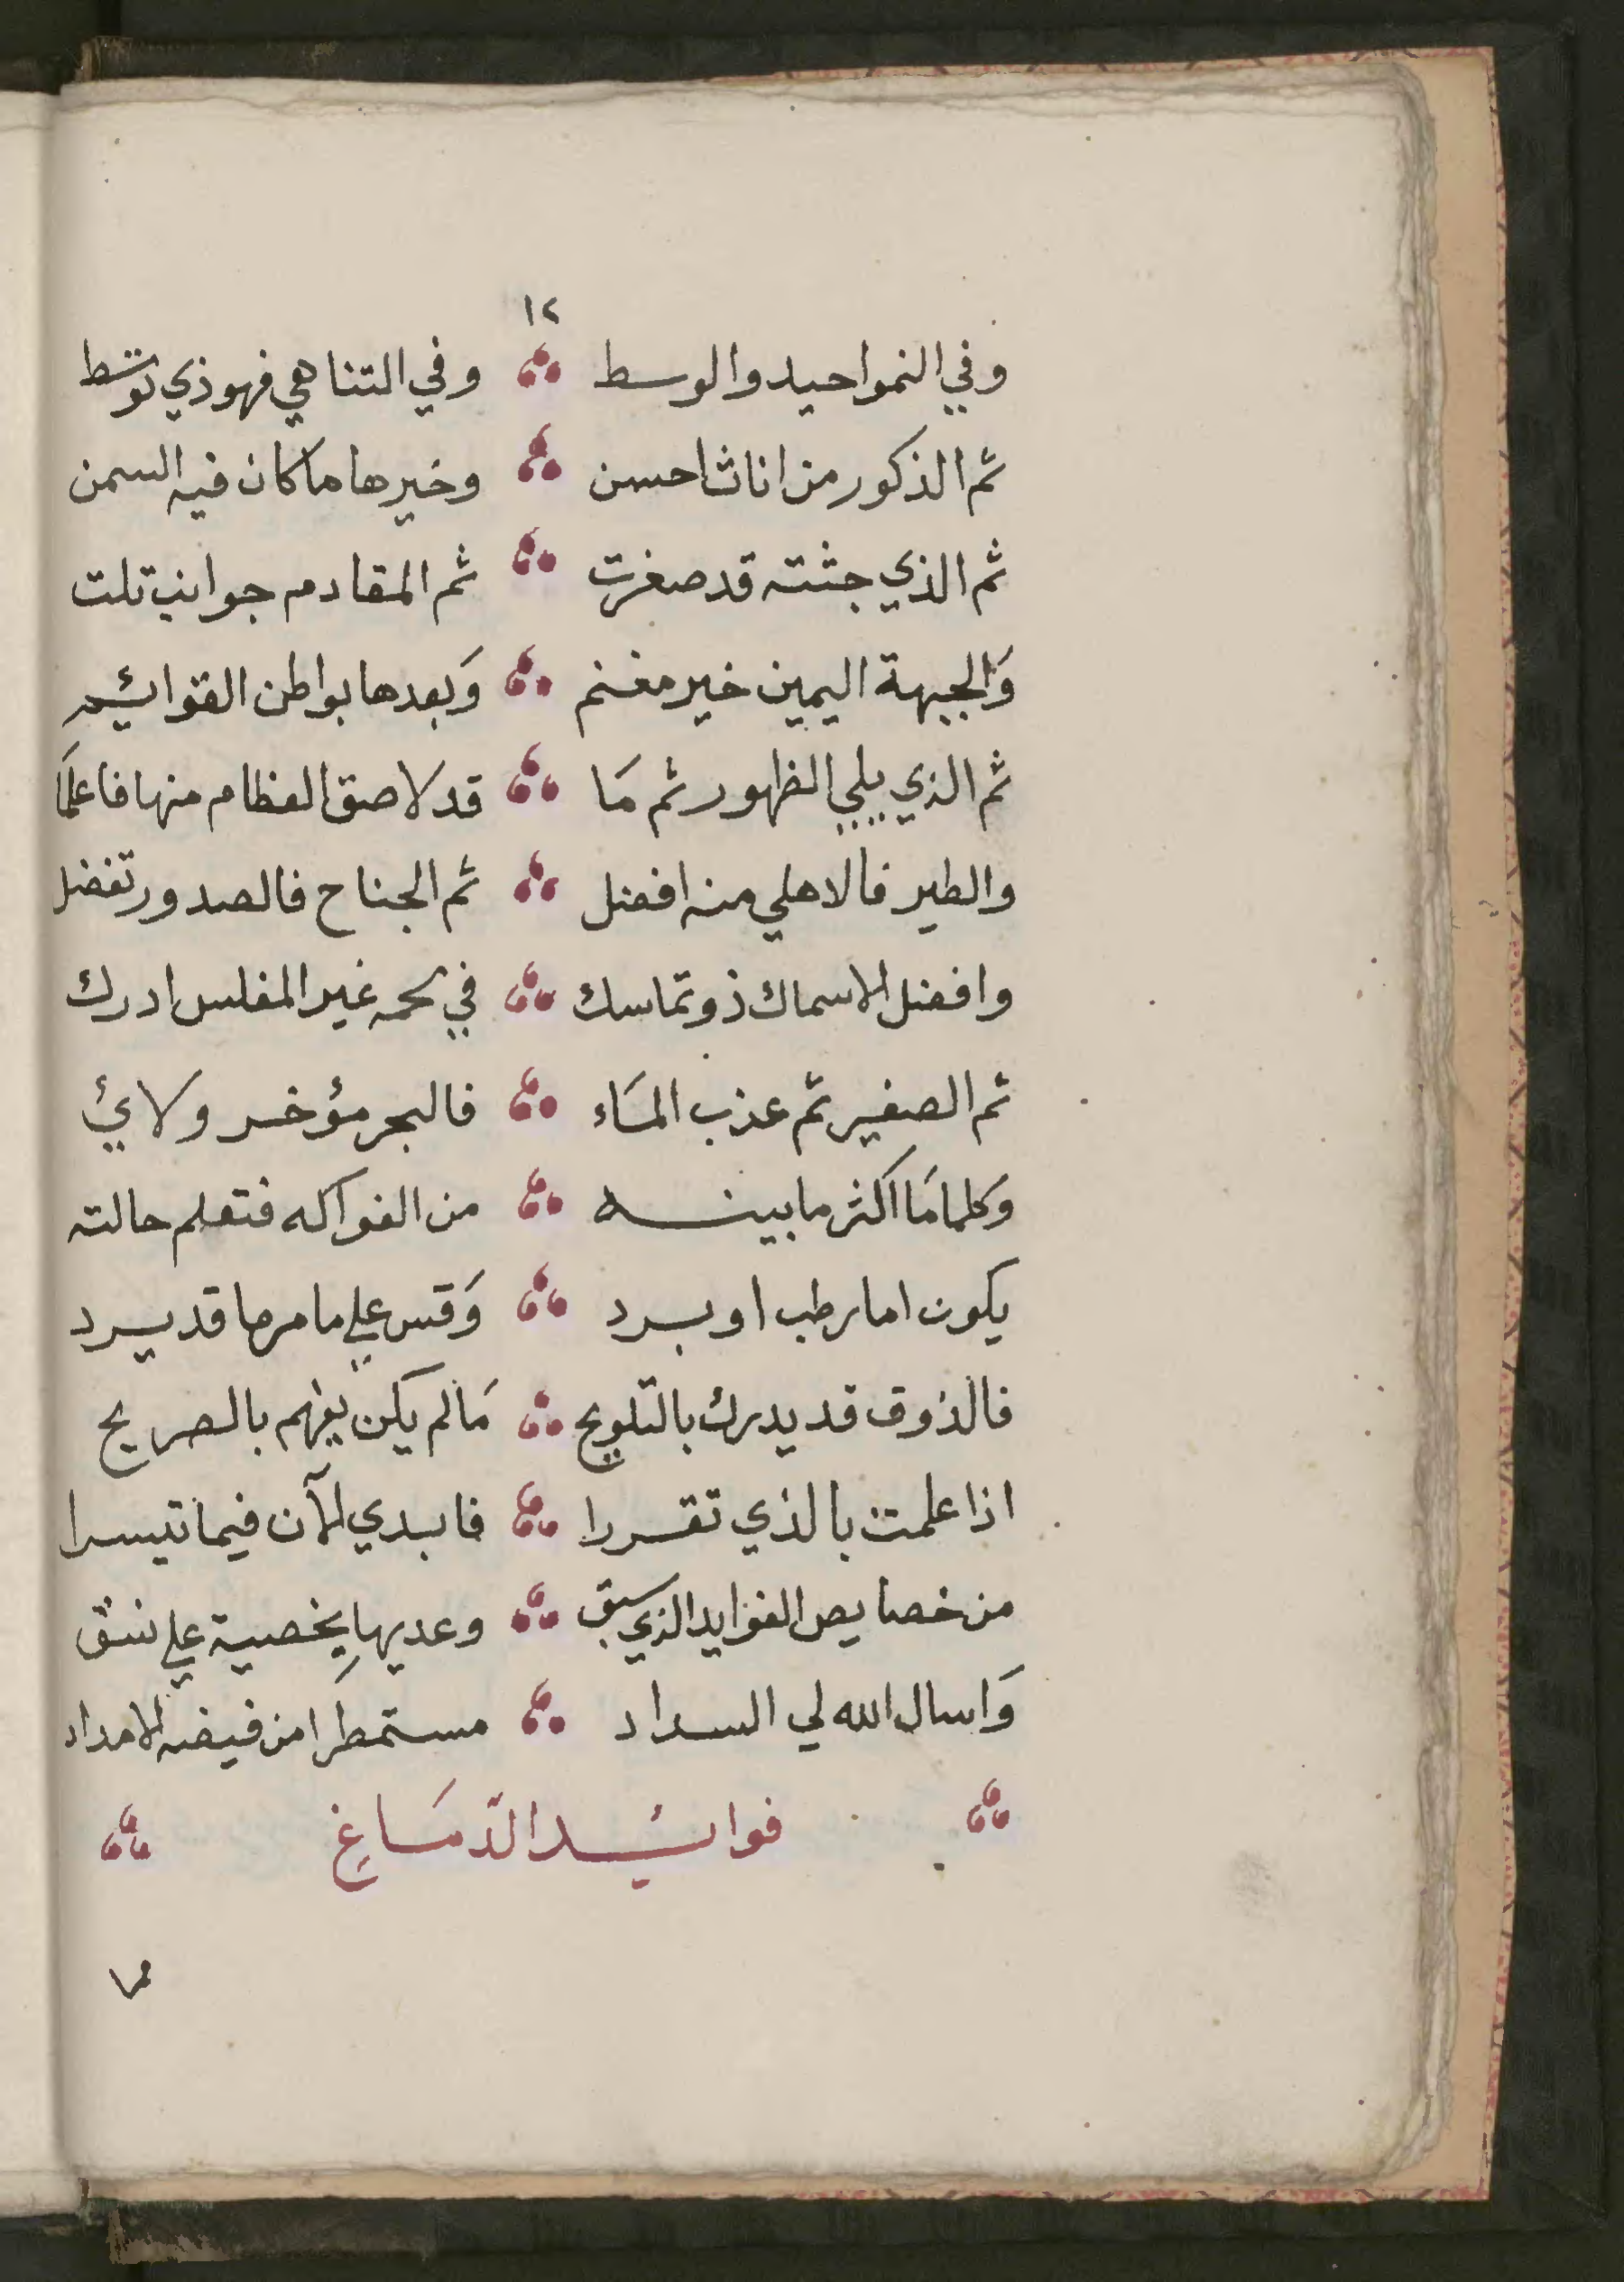 ١٢
وفي النمواحيد والوسط وفي التناهي فهوذي توسط
ثم الذكور من اناث احسن وخيرها ما كان فيه السمن
ثم الذي جثته قد صغرت ثم المقادم جوانب تلت
وَالجبهة اليمين خير مغنم وَبعدها بواطن القوائم
ثم الذي يلي الظهور ثم مَا قد لاصق العظام منها فاعلمَا
والطير فالاهلي منه افضل ثم الجناح فالصدور تفضل
وافضل الاسماك ذو تماسك في لحمه غير المفلس ادرك
ثم الصغير ثم عذب المَاء فالبحر مؤخر ولائي
وَكلما مَا اكثر ما بينه من الفواكه فتعلم حالته
يكون اما رطب او برد وَقس علي ما مرها قد يرد
فالذوق قد يدرك بالتلويح مَا لم يكن يفهم بالصريح
اذا علمت بالذي تقررا فابدي الآن فيما تيسرا
من خصايص الفوايد الذي سبق وعديها بِخصية علي نسق
وَاسال الله لي السداد مستمطرا من فيضه الامداد
فوائد الدّمَاغِ